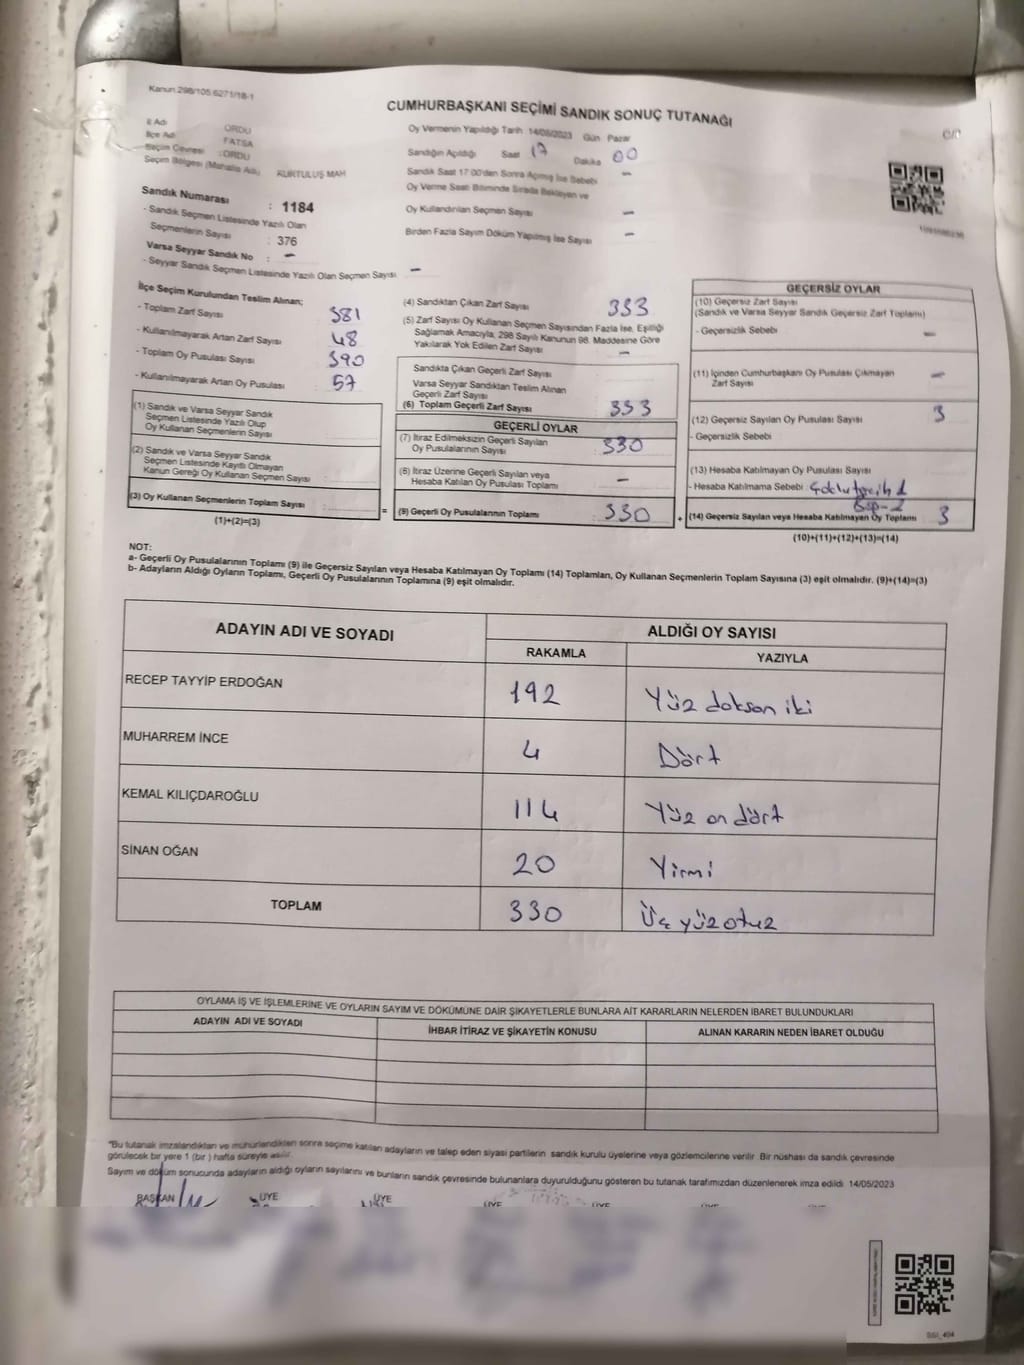 Kanun 298/105.6271/18-1
CUMHURBAŞKANI SEÇİMİ SANDIK SONUÇ TUTANAĞI
İl Adı : ORDU
İlçe Adı : FATSA
Seçim Çevresi : ORDU
Seçim Bölgesi (Mahalle Adı) KURTULUŞ MAH
Sandık Numarası : 1184
- Sandık Seçmen Listesinde Yazılı Olan
Seçmenlerin Sayısı : 376
Varsa Seyyar Sandık No : -
- Seyyar Sandık Seçmen Listesinde Yazılı Olan Seçmen Sayısı -
Oy Vermenin Yapıldığı Tarih 14/05/2023 Gün Pazar
Sandığın Açıldığı Saat 17 Dakika 00
Sandık Saat 17:00'den Sonra Açılmış İse Sebebi -
Oy Verme Saati Bitiminde Sırada Bekleyen ve
Oy Kullandırılan Seçmen Sayısı -
Birden Fazla Sayım Döküm Yapılmış İse Sayısı -
İlçe Seçim Kurulundan Teslim Alınan;
- Toplam Zarf Sayısı : 381
- Kullanılmayarak Artan Zarf Sayısı : 48
- Toplam Oy Pusulası Sayısı : 390
- Kullanılmayarak Artan Oy Pusulası : 57
(1) Sandık ve Varsa Seyyar Sandık
Seçmen Listesinde Yazılı Olup
Oy Kullanan Seçmenlerin Sayısı
(2) Sandık ve Varsa Seyyar Sandık
Seçmen Listesinde Kayıtlı Olmayan
Kanun Gereği Oy Kullanan Seçmen Sayısı :
(3) Oy Kullanan Seçmenlerin Toplam Sayısı :
(1)+(2)=(3)
(4) Sandıktan Çıkan Zarf Sayısı 333
(5) Zarf Sayısı Oy Kullanan Seçmen Sayısından Fazla İse, Eşitliği
Sağlamak Amacıyla, 298 Sayılı Kanunun 98. Maddesine Göre
Yakılarak Yok Edilen Zarf Sayısı -
Sandıkta Çıkan Geçerli Zarf Sayısı
Varsa Seyyar Sandıktan Teslim Alınan
Geçerli Zarf Sayısı
(6) Toplam Geçerli Zarf Sayısı : 333
GEÇERLİ OYLAR
(7) İtiraz Edilmeksizin Geçerli Sayılan
Oy Pusulalarının Sayısı : 330
(8) İtiraz Üzerine Geçerli Sayılan veya
Hesaba Katılan Oy Pusulası Toplamı : -
= (9) Geçerli Oy Pusulalarının Toplamı : 330 +
GEÇERSİZ OYLAR
(10) Geçersiz Zarf Sayısı
(Sandık ve Varsa Seyyar Sandık Geçersiz Zarf Toplamı)
- Geçersizlik Sebebi -
(11) İçinden Cumhurbaşkanı Oy Pusulası Çıkmayan
Zarf Sayısı -
(12) Geçersiz Sayılan Oy Pusulası Sayısı 3
- Geçersizlik Sebebi
(13) Hesaba Katılmayan Oy Pusulası Sayısı
- Hesaba Katılmama Sebebi :
(14) Geçersiz Sayılan veya Hesaba Katılmayan Oy Toplamı 3
(10)+(11)+(12)+(13)=(14)
NOT:
a- Geçerli Oy Pusulalarının Toplamı (9) ile Geçersiz Sayılan veya Hesaba Katılmayan Oy Toplamı (14) Toplamları, Oy Kullanan Seçmenlerin Toplam Sayısına (3) eşit olmalıdır. (9)+(14)=(3)
b- Adayların Aldığı Oyların Toplamı, Geçerli Oy Pusulalarının Toplamına (9) eşit olmalıdır.
ADAYIN ADI VE SOYADI
ALDIĞI OY SAYISI
RAKAMLA YAZIYLA
RECEP TAYYİP ERDOĞAN 192 Yüz doksan iki
MUHARREM İNCE 4 Dört
KEMAL KILIÇDAROĞLU 114 Yüz on dört
SİNAN OĞAN 20 Yirmi
TOPLAM 330 Üç yüz otuz
OYLAMA İŞ VE İŞLEMLERİNE VE OYLARIN SAYIM VE DÖKÜMÜNE DAİR ŞİKAYETLERLE BUNLARA AİT KARARLARIN NELERDEN İBARET BULUNDUKLARI
ADAYIN ADI VE SOYADI İHBAR İTİRAZ VE ŞİKAYETİN KONUSU ALINAN KARARIN NEDEN İBARET OLDUĞU
"Bu tutanak imzalandıktan ve mühürlendikten sonra seçime katılan adayların ve talep eden siyasi partilerin sandık kurulu üyelerine veya gözlemcilerine verilir. Bir nüshası da sandık çevresinde
görülecek bir yere 1 (bir) hafta süreyle asılır.
Sayım ve döküm sonucunda adayların aldığı oyların sayılarını ve bunların sandık çevresinde bulunanlara duyurulduğunu gösteren bu tutanak tarafımızdan düzenlenerek imza edildi. 14/05/2023
BAŞKAN ÜYE ÜYE ÜYE ÜYE ÜYE